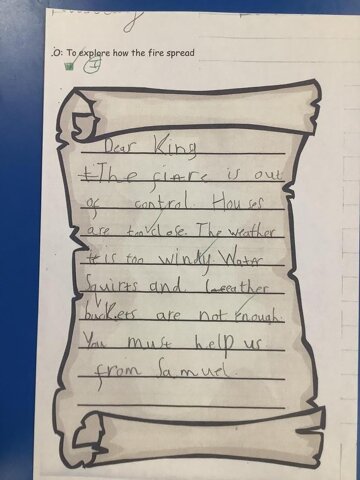 .O: To explore how the fire spread
Dear King
The fire is out
of control. Houses
are too close. The weather
is too windy. Water
Squirts and leather
buckets are not enough.
You must help us
from Samuel.